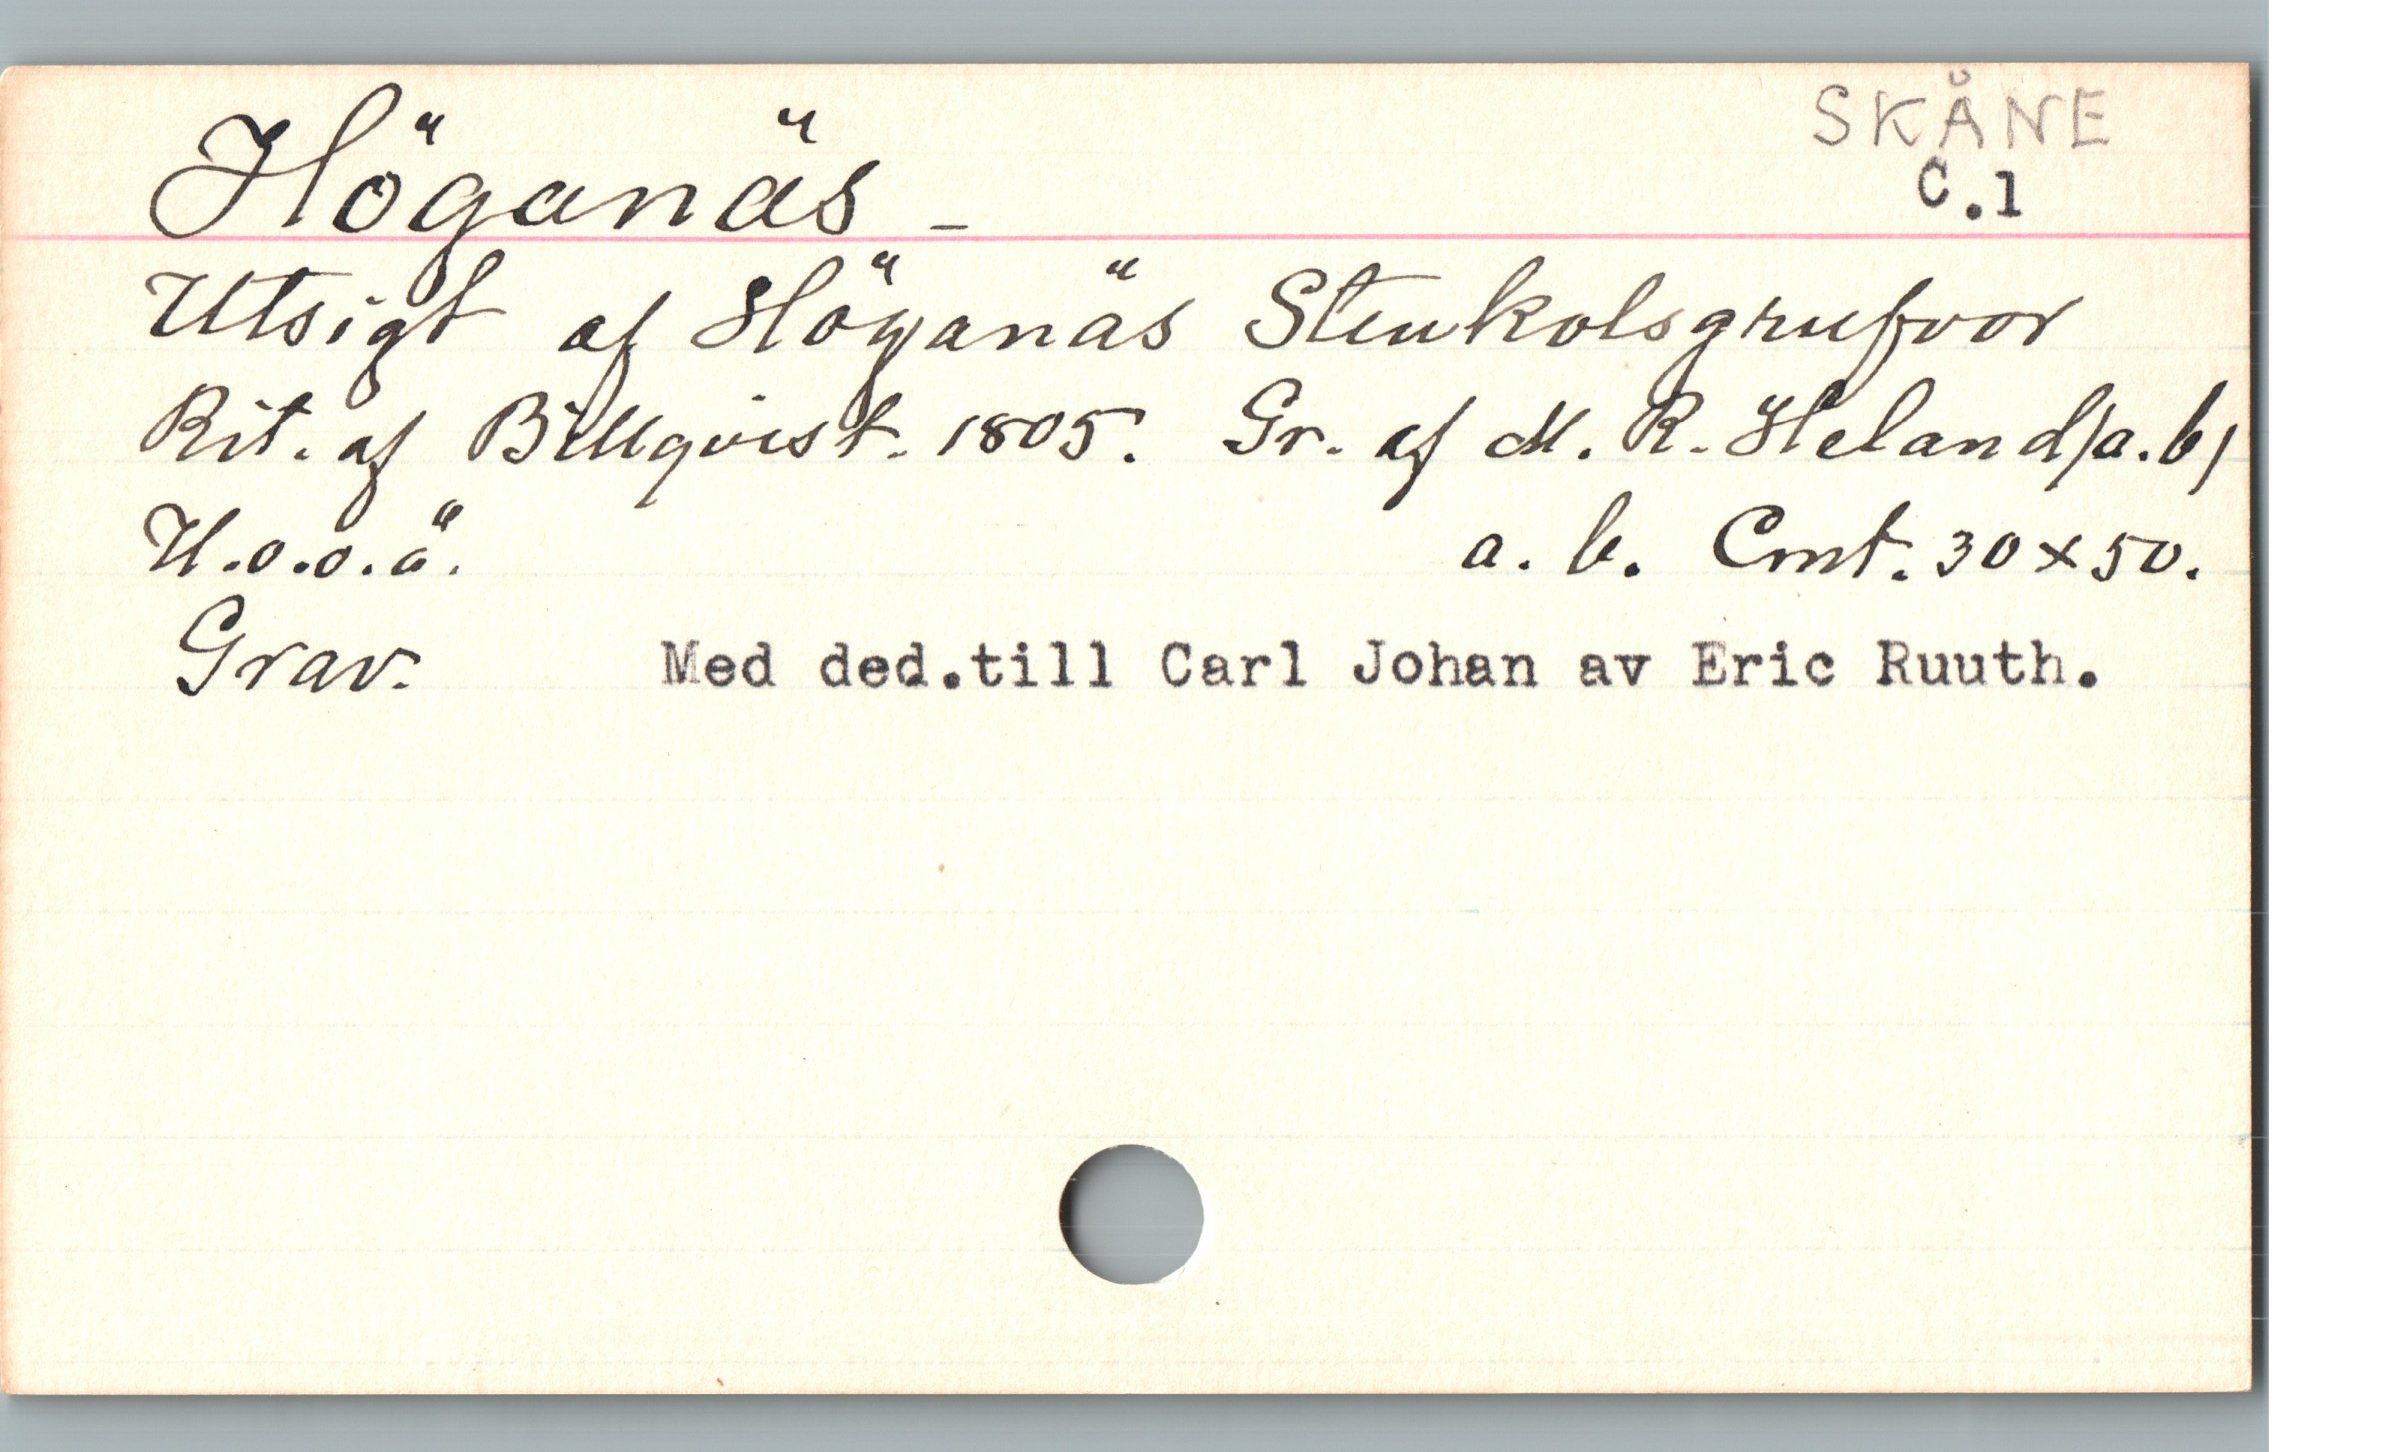 SKÅNE
C.1
Höganäs -
Utsigt af Höganäs Stenkolsgrufvor
Rit. af Billqvist. 1805. Gr. af M. R. Heland/a.b/
U.o.o.ä. a. b. Cmt. 30x50.
Grav. Med ded.till Carl Johan av Eric Ruuth.